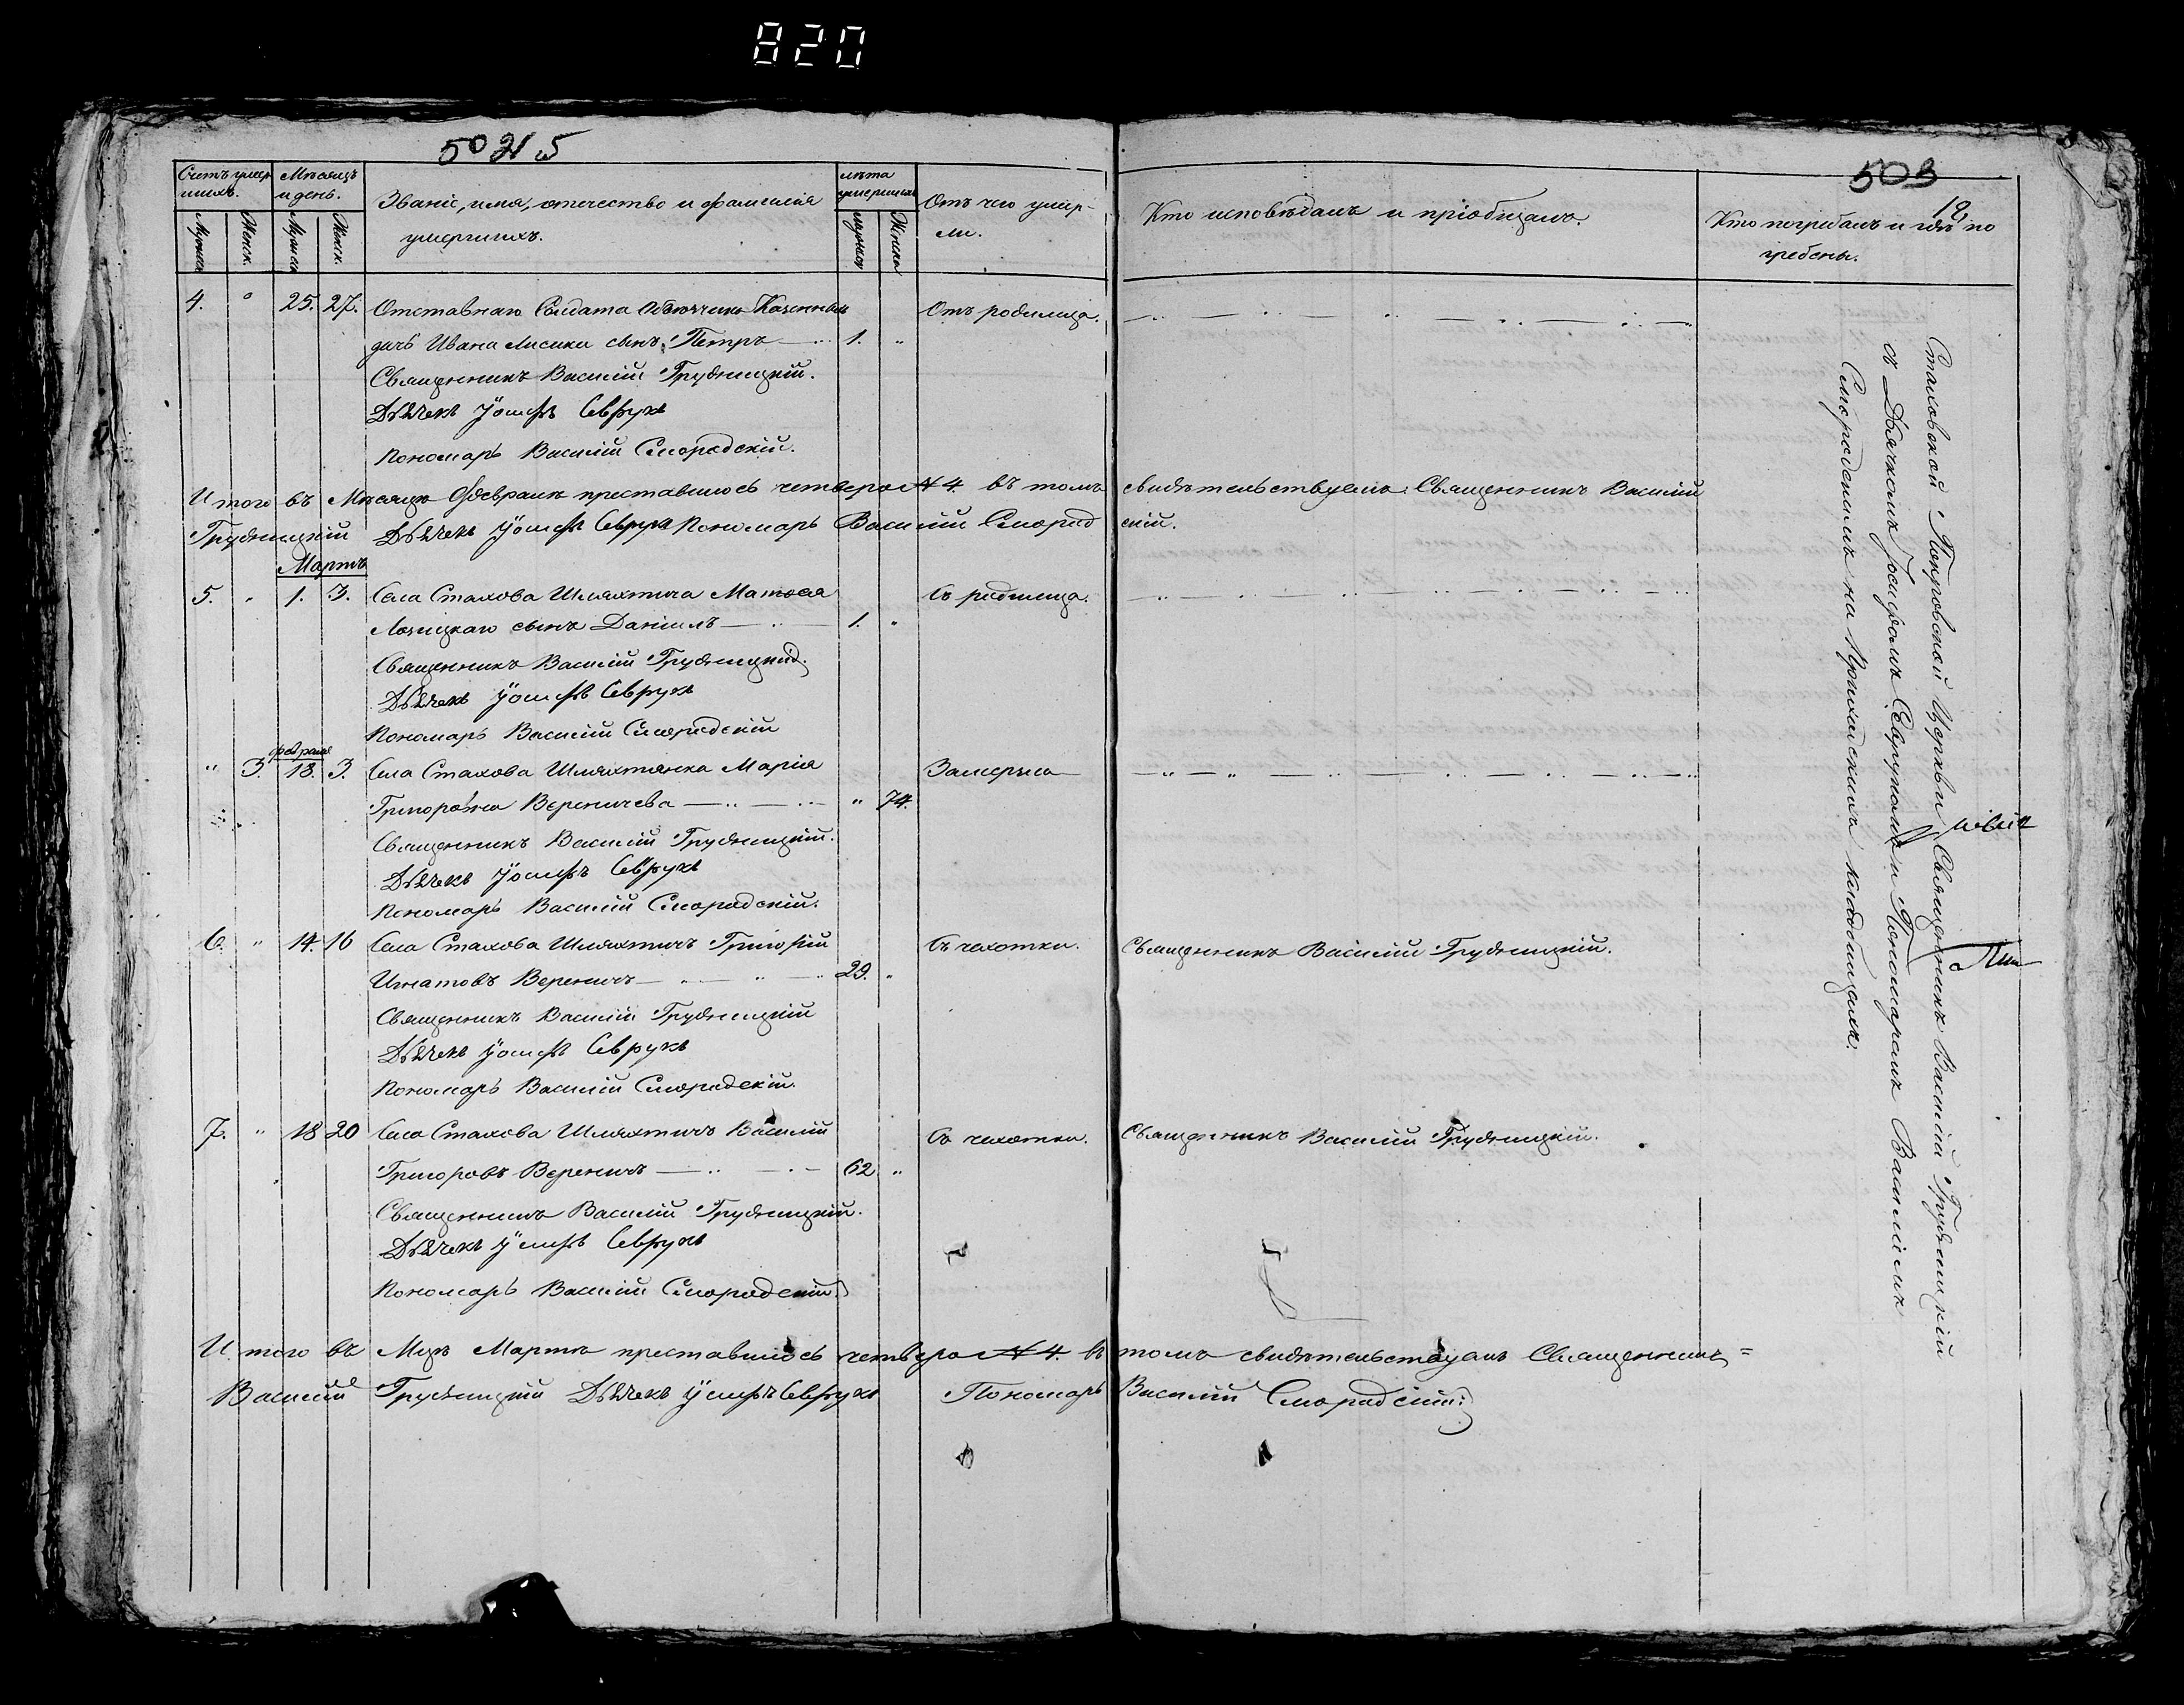 820
503
12
Счетъ умер
шихъ.
Мѣсяцъ
и день.
Званіе, имя, отечество и фамилія
умершихъ.
лѣта
умершихъ
Отъ чего умер-
ли.
Кто исповѣдалъ и пріобщалъ.
Кто погребалъ и гдѣ по
гребены.
Мужеск Женск. Мужеск Женск. мужеск Женск
4. " 25. 27. Отставнаго Солдата Казенныхъ Отъ родимца.
дачъ Ивана Лисики сынъ Петръ 1. "
Священникъ Василій Грудницкій.
Дьячекъ Іосифъ Севрукъ
Пономарь Василій Смородскій.
Итого въ Мѣсяцѣ Февралѣ преставилось четверо № 4. въ томъ свидѣтельствуемъ: Священникъ Василій
Грудницкій Дьячекъ Іосифъ Севрукъ Пономарь Василій Смород скій.
Мартъ
5. " 1. 3. Села Стахова Шляхтича Матвея Съ родимца.
Лозицкаго сынъ Даніилъ 1. "
Священникъ Василій Грудницкій.
Дьячекъ Іосифъ Севрукъ
Пономарь Василій Смородскій
февраля
" 3. 18. 3. Села Стахова Шляхтянка Марія Замерзла
Григорова Вереничева " 74.
Священникъ Василій Грудницкій.
Дьячекъ Іосифъ Севрукъ
Пономарь Василій Смородскій.
6. " 14. 16 Села Стахова Шляхтичъ Григорій Съ чахотки. Священникъ Василій Грудницкій.
Игнатовъ Вереничъ 29. "
Священникъ Василій Грудницкій
Дьячекъ Іосифъ Севрукъ
Пономарь Василій Смородскій.
7. " 18 20 Села Стахова Шляхтичъ Василій Съ чахотки. Священникъ Василій Грудницкій.
Григоровъ Вереничъ 62 "
Священникъ Василій Грудницкій.
Дьячекъ Іосифъ Севрукъ
Пономарь Василій Смородскій.
Итого въ Мцѣ Мартѣ преставилось четверо № 4. въ томъ свидѣтельствуемъ Священникъ =
Василій Грудницкій Дьячекъ Іосифъ Севрукъ Пономарь Василій Смородскій.
Стаховской Покровской Церкви Священникъ Василій Грудницкій
съ Дьячкомъ Іосифомъ Севрукомъ и Пономаремъ Василіемъ
Смородскимъ на Приходскихъ кладбищахъ.